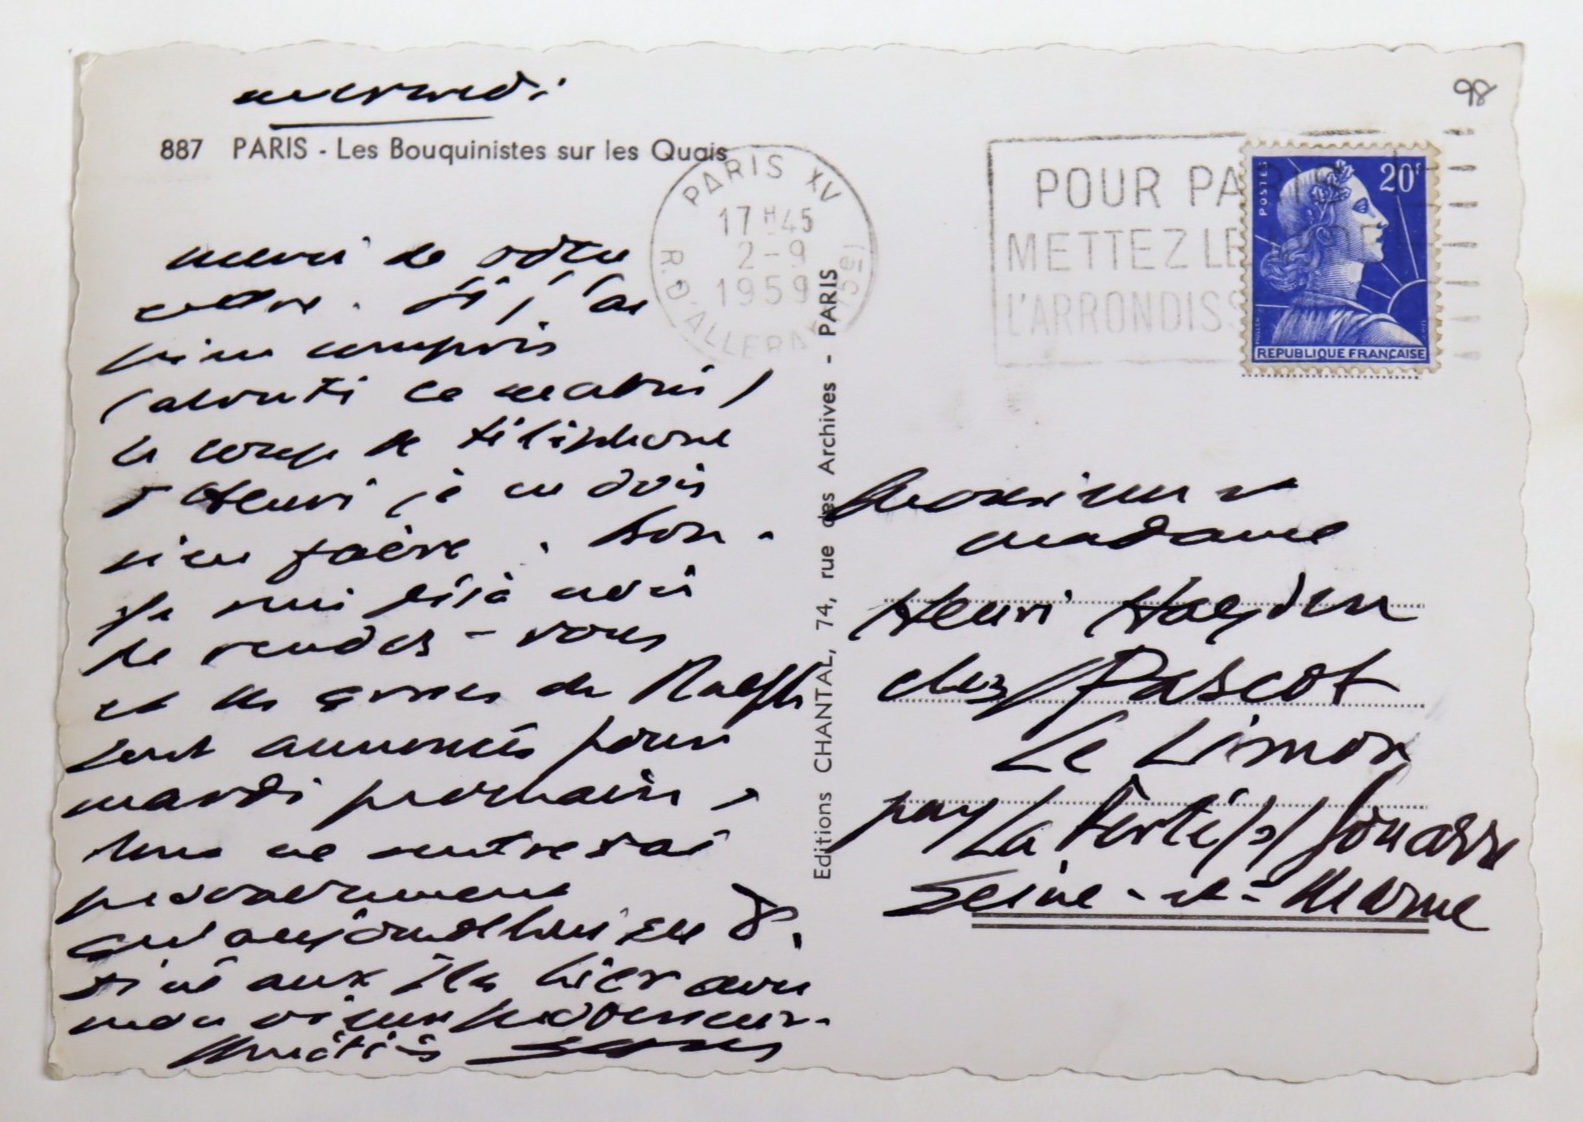 mercredi
887 PARIS - Les Bouquinistes sur les Quais
98
PARIS XV
17H45
2-9
1959
R. D'ALLERAY (15e)
POUR PA
METTEZ LE
L'ARRONDISS
POSTES
20f
REPUBLIQUE FRANÇAISE
Merci de votre
lettre. Si j'ai
bien compris
(abruti ce matin)
le coup de téléphone
d'Henri je ne dois
rien faire. Bon.
Je suis déjà
de rendez-vous
et les de Ralph
sont annoncés pour
mardi prochain,
donc ne rentrerai
probablement
qu'aujourd'hui en 8.
Dîné aux Iles hier avec
mon vieux professeur.
Amitiés Sam
Editions CHANTAL, 74, rue des Archives - PARIS
Monsieur et
Madame
Henri Hayden
chez Pascot
Le Limon
par La Ferté/s/Jouarre
Seine-et-Marne